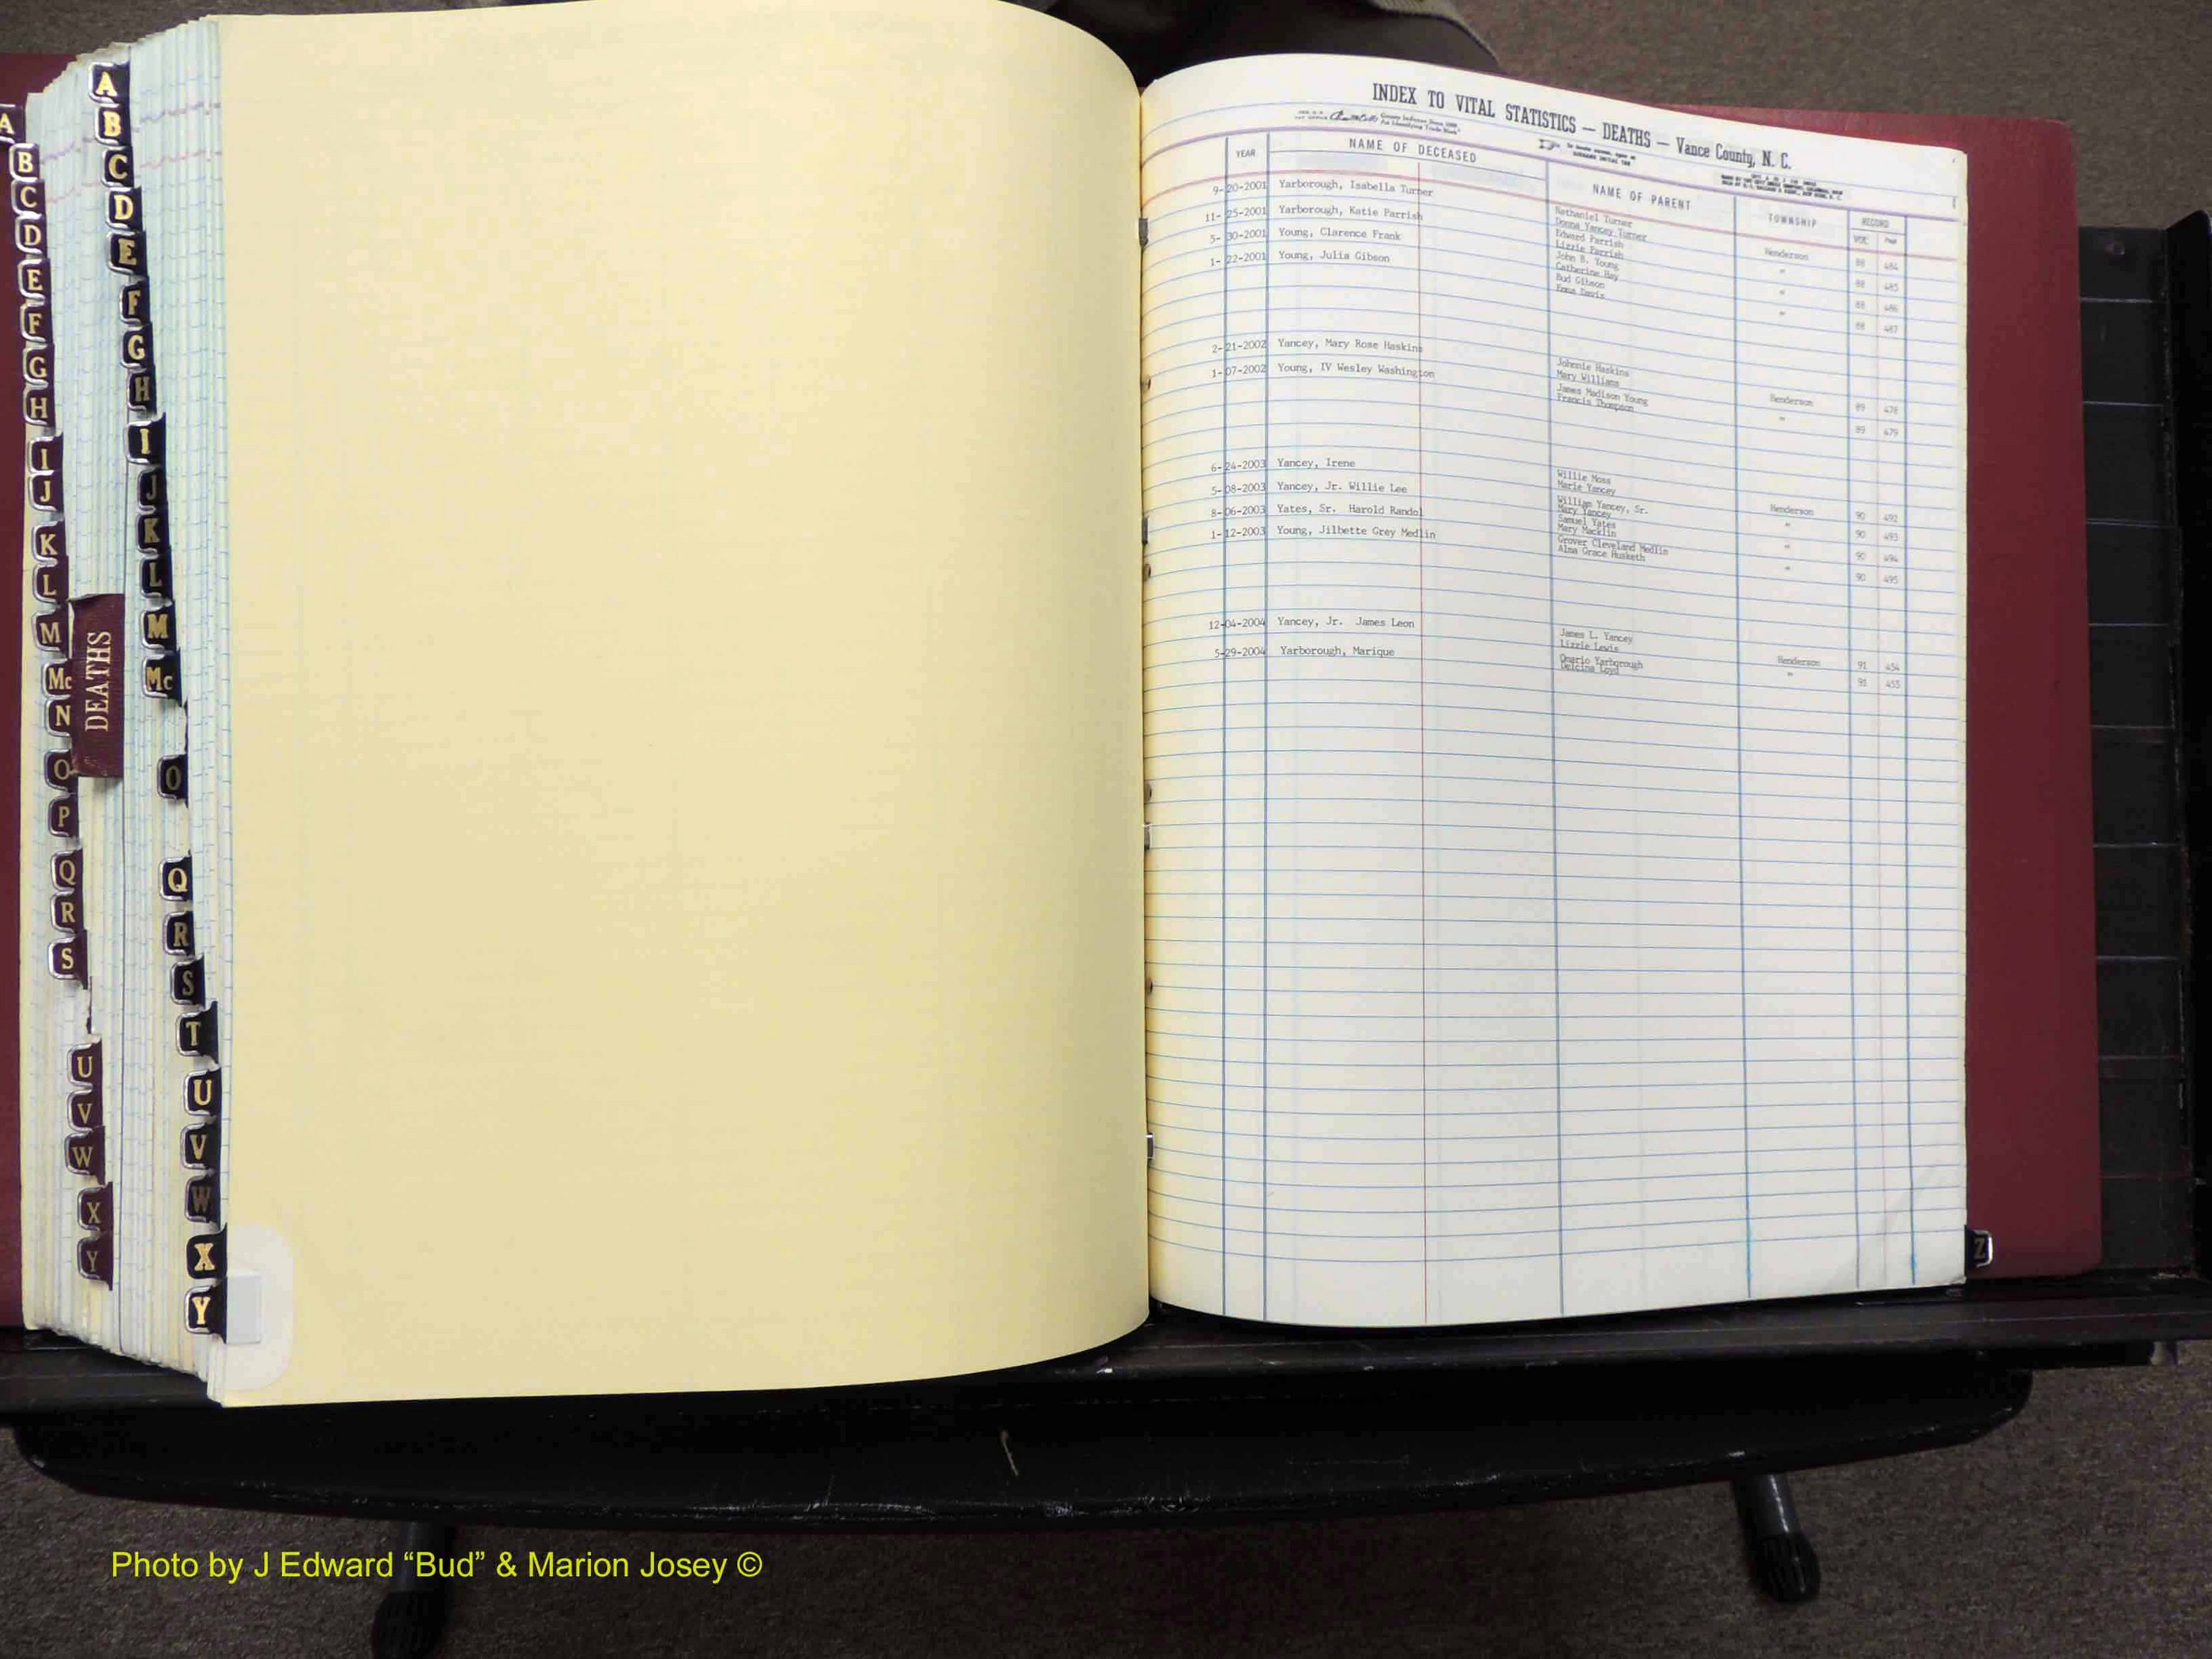 A
B
C
D
E
F
G
H
I
J
K
L
M
Mc
N
O
P
Q
R
S
U
V
W
X
Y
DEATHS
A
B
C
D
E
F
G
H
I
J
K
L
M
Mc
O
Q
R
S
T
U
V
W
X
Y
INDEX TO VITAL STATISTICS — DEATHS — Vance County, N. C.
YEAR NAME OF DECEASED NAME OF PARENT TOWNSHIP RECORD
VOL. PAGE
9-20-2001 Yarborough, Isabella Turner Nathaniel Turner Henderson 88 484
Donna Yancey Turner
11-25-2001 Yarborough, Katie Parrish Edward Parrish " 88 485
Lizzie Parrish
5-30-2001 Young, Clarence Frank John B. Young " 88 486
Catherine Hay
1-22-2001 Young, Julia Gibson Bud Gibson " 88 487
Emma Davis
2-21-2002 Yancey, Mary Rose Haskins Johnnie Haskins Henderson 89 478
Mary Williams
1-07-2002 Young, IV Wesley Washington James Madison Young " 89 479
Francis Thompson
6-24-2003 Yancey, Irene Willie Moss Henderson 90 492
Marie Yancey
5-08-2003 Yancey, Jr. Willie Lee William Yancey, Sr. " 90 493
Mary Yancey
8-06-2003 Yates, Sr. Harold Randol Samuel Yates " 90 494
Mary Macklin
1-12-2003 Young, Jilbette Grey Medlin Grover Cleveland Medlin " 90 495
Alma Grace Husketh
12-04-2004 Yancey, Jr. James Leon James L. Yancey Henderson 91 454
Lizzie Lewis
5-29-2004 Yarborough, Marique Omario Yarborough " 91 455
Delcina Loyd
Z
Photo by J Edward “Bud” & Marion Josey ©